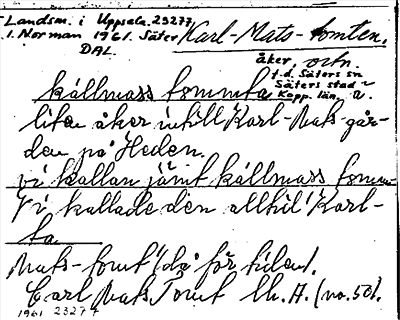 Landsm. i Uppsala. 23277
I. Norman 1961. Säter
DAL.
Karl-Mats-tomten,
åker, ortn.
t.d. Säters sn
Säters stad
Kopp. län.
kállmass tommta
liten åker intill Karl-Mats går-
den på Heden.
vi kallan jämt kállmass
Vi kallade den alltid Karl-
ta
Mats-tomt (då för tiden).
Carl Mats Tomt lh. A. (no. 50).
1961 23277